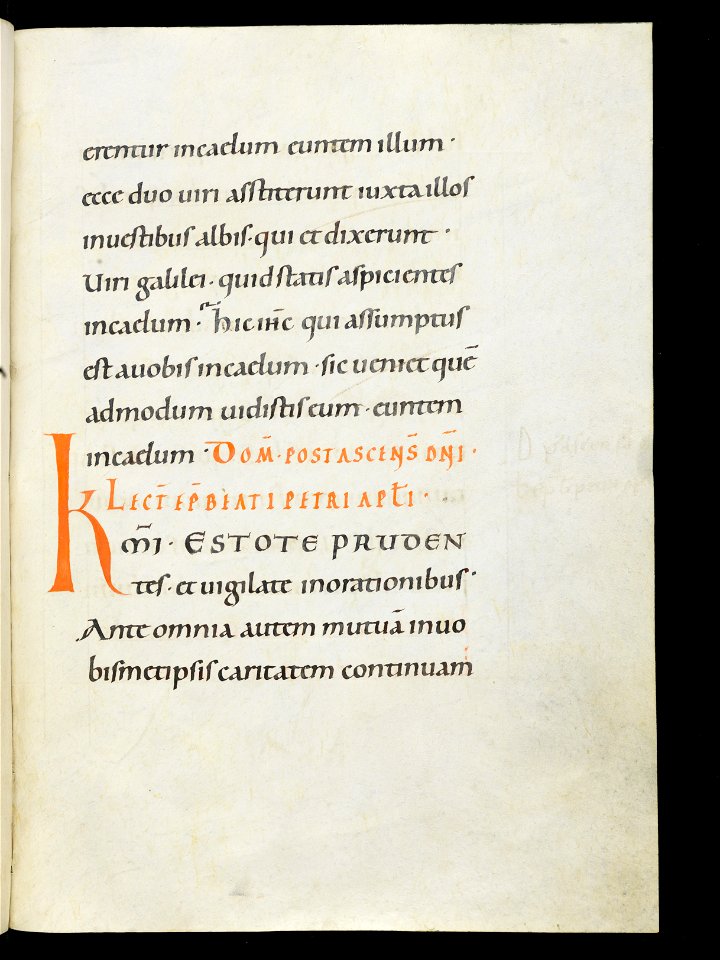 erentur incaelum euntem illum ·
ecce duo uiri asstiterunt iuxta illos
inuestibus albis· qui et dixerunt ·
Uiri galilei · quid statis aspicientes
incaelum · hic ih̅c qui assumptus
est auobis incaelum · sic ueniet que̅
admodum uidistis eum · euntem
incaelum · DOM̅ · POST ASCENS̅ DN̅I ·
LECT̅ EP̅ BEATI PETRI APL̅I ·
Km̅i · ESTOTE PRUDEN
tes · et uigilate inorationibus ·
Ante omnia autem mutua̅ inuo
bismetipsis caritatem continuam